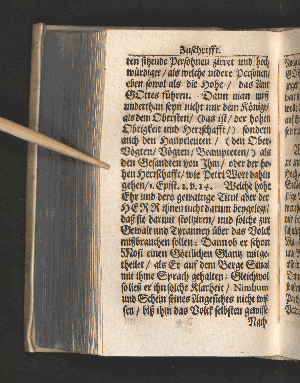 Zuschrifft.
den sitzende Persohnen zieret und hoch
würdiget / als welche nidere Personen/
eben sowol als die Hohe / das Amt
GOttes führen. Dann man muß
underthan seyn nicht nur dem Könige
als dem Obersten / (das ist / der hohen
Obrigkeit und Herrschafft /) sondern
auch den Hauptleuten / (den Ober-
Vögten / Vögten / Beampteten /) als
den Gesandten von Ihm / oder der ho-
hen Herrschafft / wie Petri Wort dahin
gehen / 1. Epist. 2. v. 14. Welche hohe
Ehr und dero gewaltige Titul aber der
HERR ihnen nicht darum beygelegt /
daß sie darmit stolziren / und solche zur
Gewalt und Tyranney über das Volck
mißbrauchen sollen: Dann ob er schon
Mosi einen Göttlichen Glantz mitge-
theilet / als Er auf dem Berge Sinai
mit ihme Sprach gehalten; Gleichwol
so ließ er ihn solche Klarheit /
und Schein seines Angesichts nicht wis-
sen / biß ihm das Volck selbsten gewisse
Nach